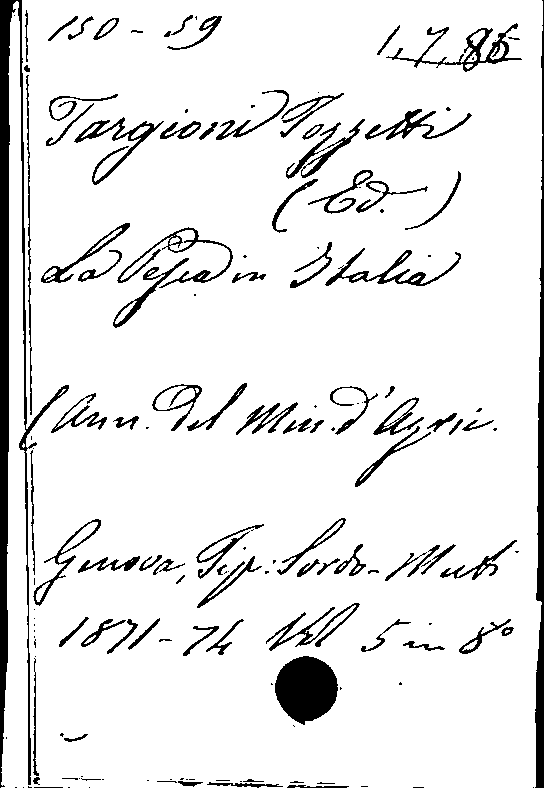 150-59
1,7,86
Targioni Tozzetti
(Ed.)
La Pesca in Italia
(Ann. del Min. d'Agric.
Genova, Tip: Sordo-Muti
1871-74 Vol 5 in 8°